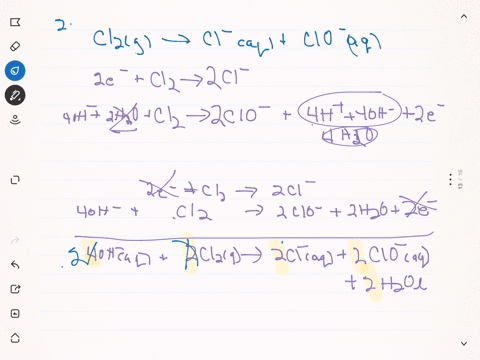 2.
Cl₂(g) → Cl⁻(aq) + ClO⁻(aq)
2e⁻ + Cl₂ → 2Cl⁻
4OH⁻ + 2H₂O + Cl₂ → 2ClO⁻ + 4H⁺ + 4OH⁻ + 2e⁻
4H₂O
2e⁻ + Cl₂ → 2Cl⁻
4OH⁻ + Cl₂ → 2ClO⁻ + 2H₂O + 2e⁻
2 4OH⁻(aq) + 2Cl₂(g) → 2Cl⁻(aq) + 2ClO⁻(aq)
+ 2H₂O l